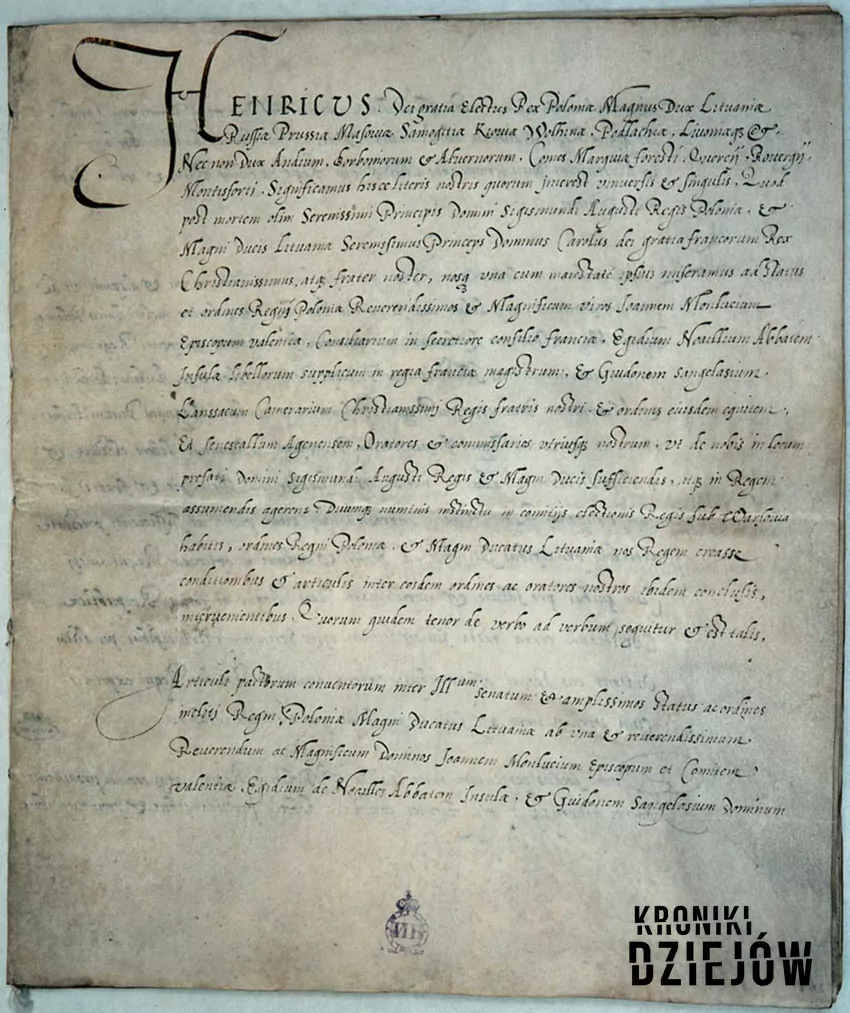 HENRICUS. Dei gratia Electus Rex Poloniæ Magnus Dux Lituaniæ
Russiæ Prussiæ Masoviæ Samogitiæ Kioviæ Wolhiniæ, Podlachiæ, Livoniæq3 &.
Nec non Dux Andium, Borboniorum & Alvernorum, Comes Marquiæ foresti, Quercij, Rovergij,
Montisforti, Significamus hisce literis nostris quorum interest universis & singulis, Quod
post mortem olim Serenissimi Principis Domini Sigismundi Augusti Regis Poloniæ, &
Magni Ducis Lituaniæ Serenissimus Princeps Dominus Carolus dei gratia francorum Rex
Christianissimus, atq3 frater noster, nosq3 una cum maiestate ipsius miseramus ad status
et ordines Regnij Poloniæ Reverendissimos & Magnificum viros Ioannem Monlucium
Episcopum valentiæ, Consiliarium in secretiore consilio franciæ, Egidium Noaillium Abbatem
Insulæ libellorum supplicum in regia franciæ magistrum, & Guidonem sangelasium
Lanssacum Camerarium Christianissimi Regis fratris nostri, & ordinis eiusdem equitem,
Et senescallum Agenensem, Oratores & commissarios utriusq3 nostrum, ut de nobis in locum
prefati Domini Sigismundi Augusti Regis & Magni Ducis sufficiendis, atq3 in Regem
assumendis agerent Divinoq3 numinis instinctu in comitijs electionis Regis sub Warsovia
habitis, ordines Regni Poloniæ, & Magni Ducatus Lituaniæ nos Regem creasse
conditionibus & articulis inter eosdem ordines ac oratores nostros ibidem conclusis,
intervenientibus, Quorum quidem tenor de verbo ad verbum sequitur & est talis.
Articuli pactorum conventorum inter Illum senatum & amplissimos status ac ordines
inclyti Regni Poloniæ Magni Ducatus Lituaniæ ab una & reverendissimum
Reverendum ac Magnificum Dominos Joannem Monlucium Episcopum et Comitem
valentiæ, Egidium de Noailles Abbatem Insulæ, & Guidonem Sangelasium Dominum
KRONIKI
DZIEJÓW